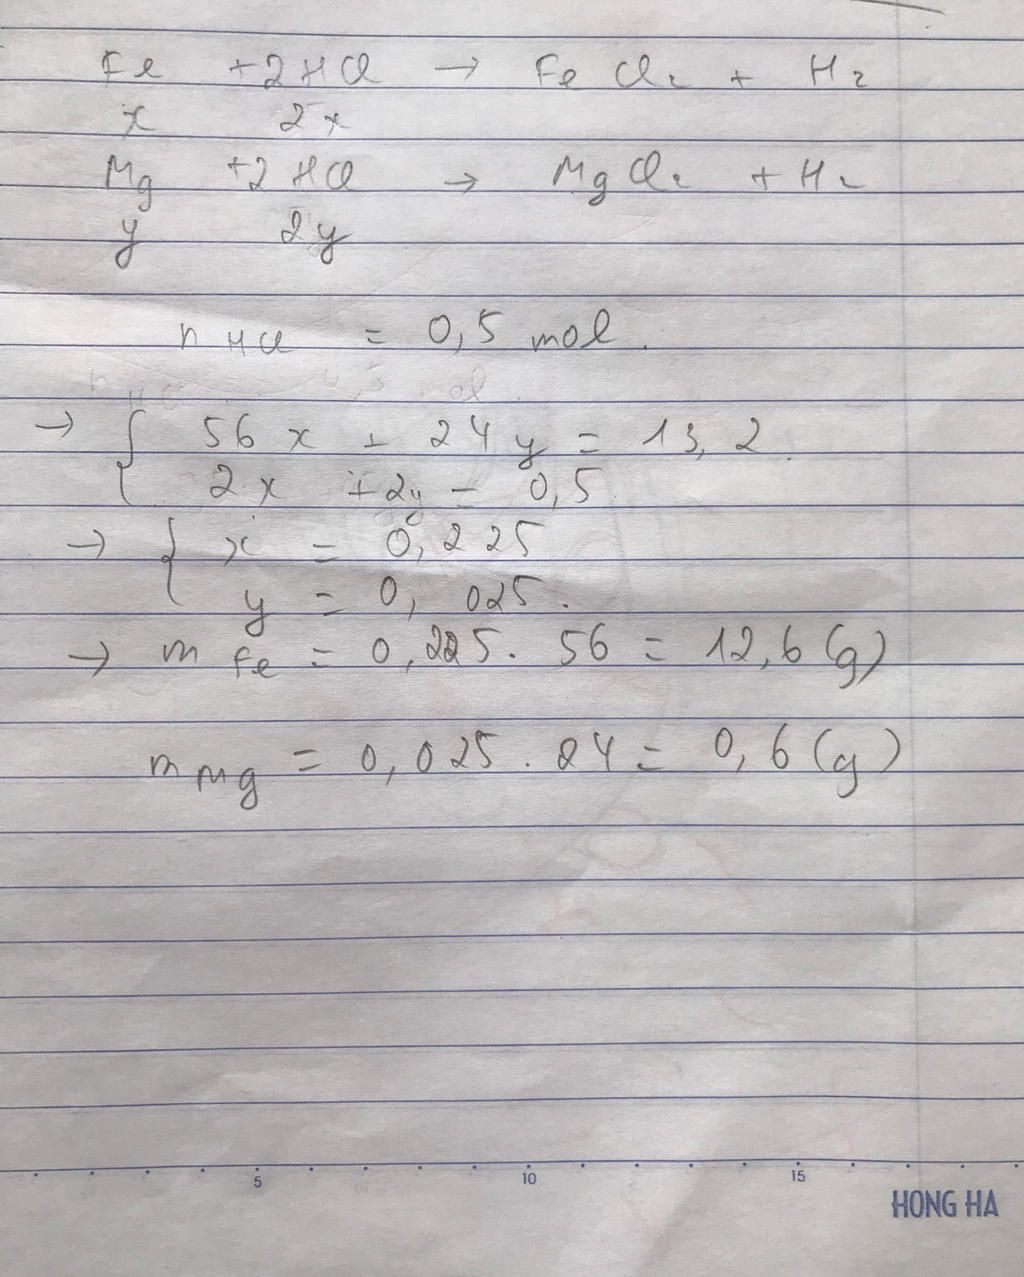 Fe +2HCl → FeCl₂ + H₂
x 2x
Mg +2HCl → MgCl₂ + H₂
y 2y
n HCl = 0,5 mol.
→ { 56x + 24y = 13,2.
2x + 2y = 0,5
→ { x = 0,225
y = 0,025.
→ m Fe = 0,225. 56 = 12,6 (g)
m Mg = 0,025. 24 = 0,6 (g)
5 10 15
HONG HA